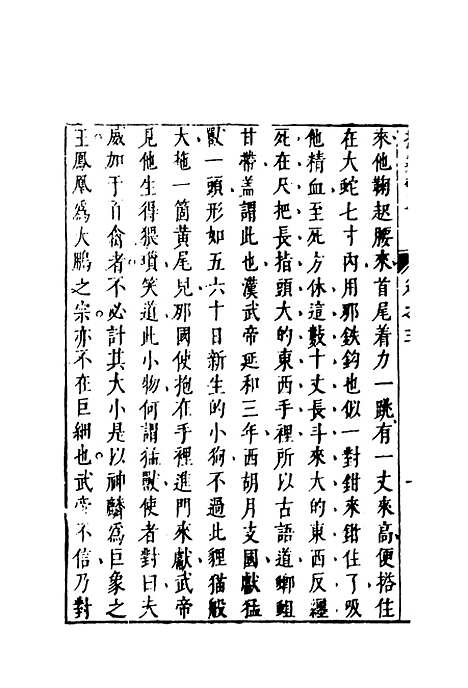 來他鞠起腰來首尾着力一跳有一丈來高便搭住
在大蛇七寸內用那鉄鉤也似一對鉗來鉗住了吸
他精血至死方休這數十丈長斗來大的東西反纏
死在尺把長指頭大的東西手裡所以古語道螂蛆
甘帶蓋謂此也漢武帝延和三年西胡月支國獻猛
獸一頭形如五六十日新生的小狗不過此狸猫般
大拖一箇黃尾兒那國使抱在手裡進門來獻武帝
見他生得猥瑣笑道此小物何謂猛獸使者對曰夫
威加于百禽者不必計其大小是以神麟爲巨象之
王鳳凰爲大鵬之宗亦不在巨細也武帝不信乃對